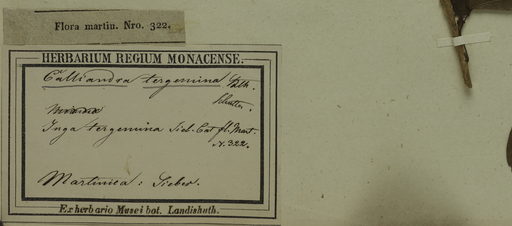 Flora martin. Nro. 322.
HERBARIUM REGIUM MONACENSE.
Calliandra tergemina Bth.
Inga tergemina Sieb. Cat. fl. Mart.
N. 322.
Martinica: Sieber.
Ex herbario Musei bot. Landishuth.